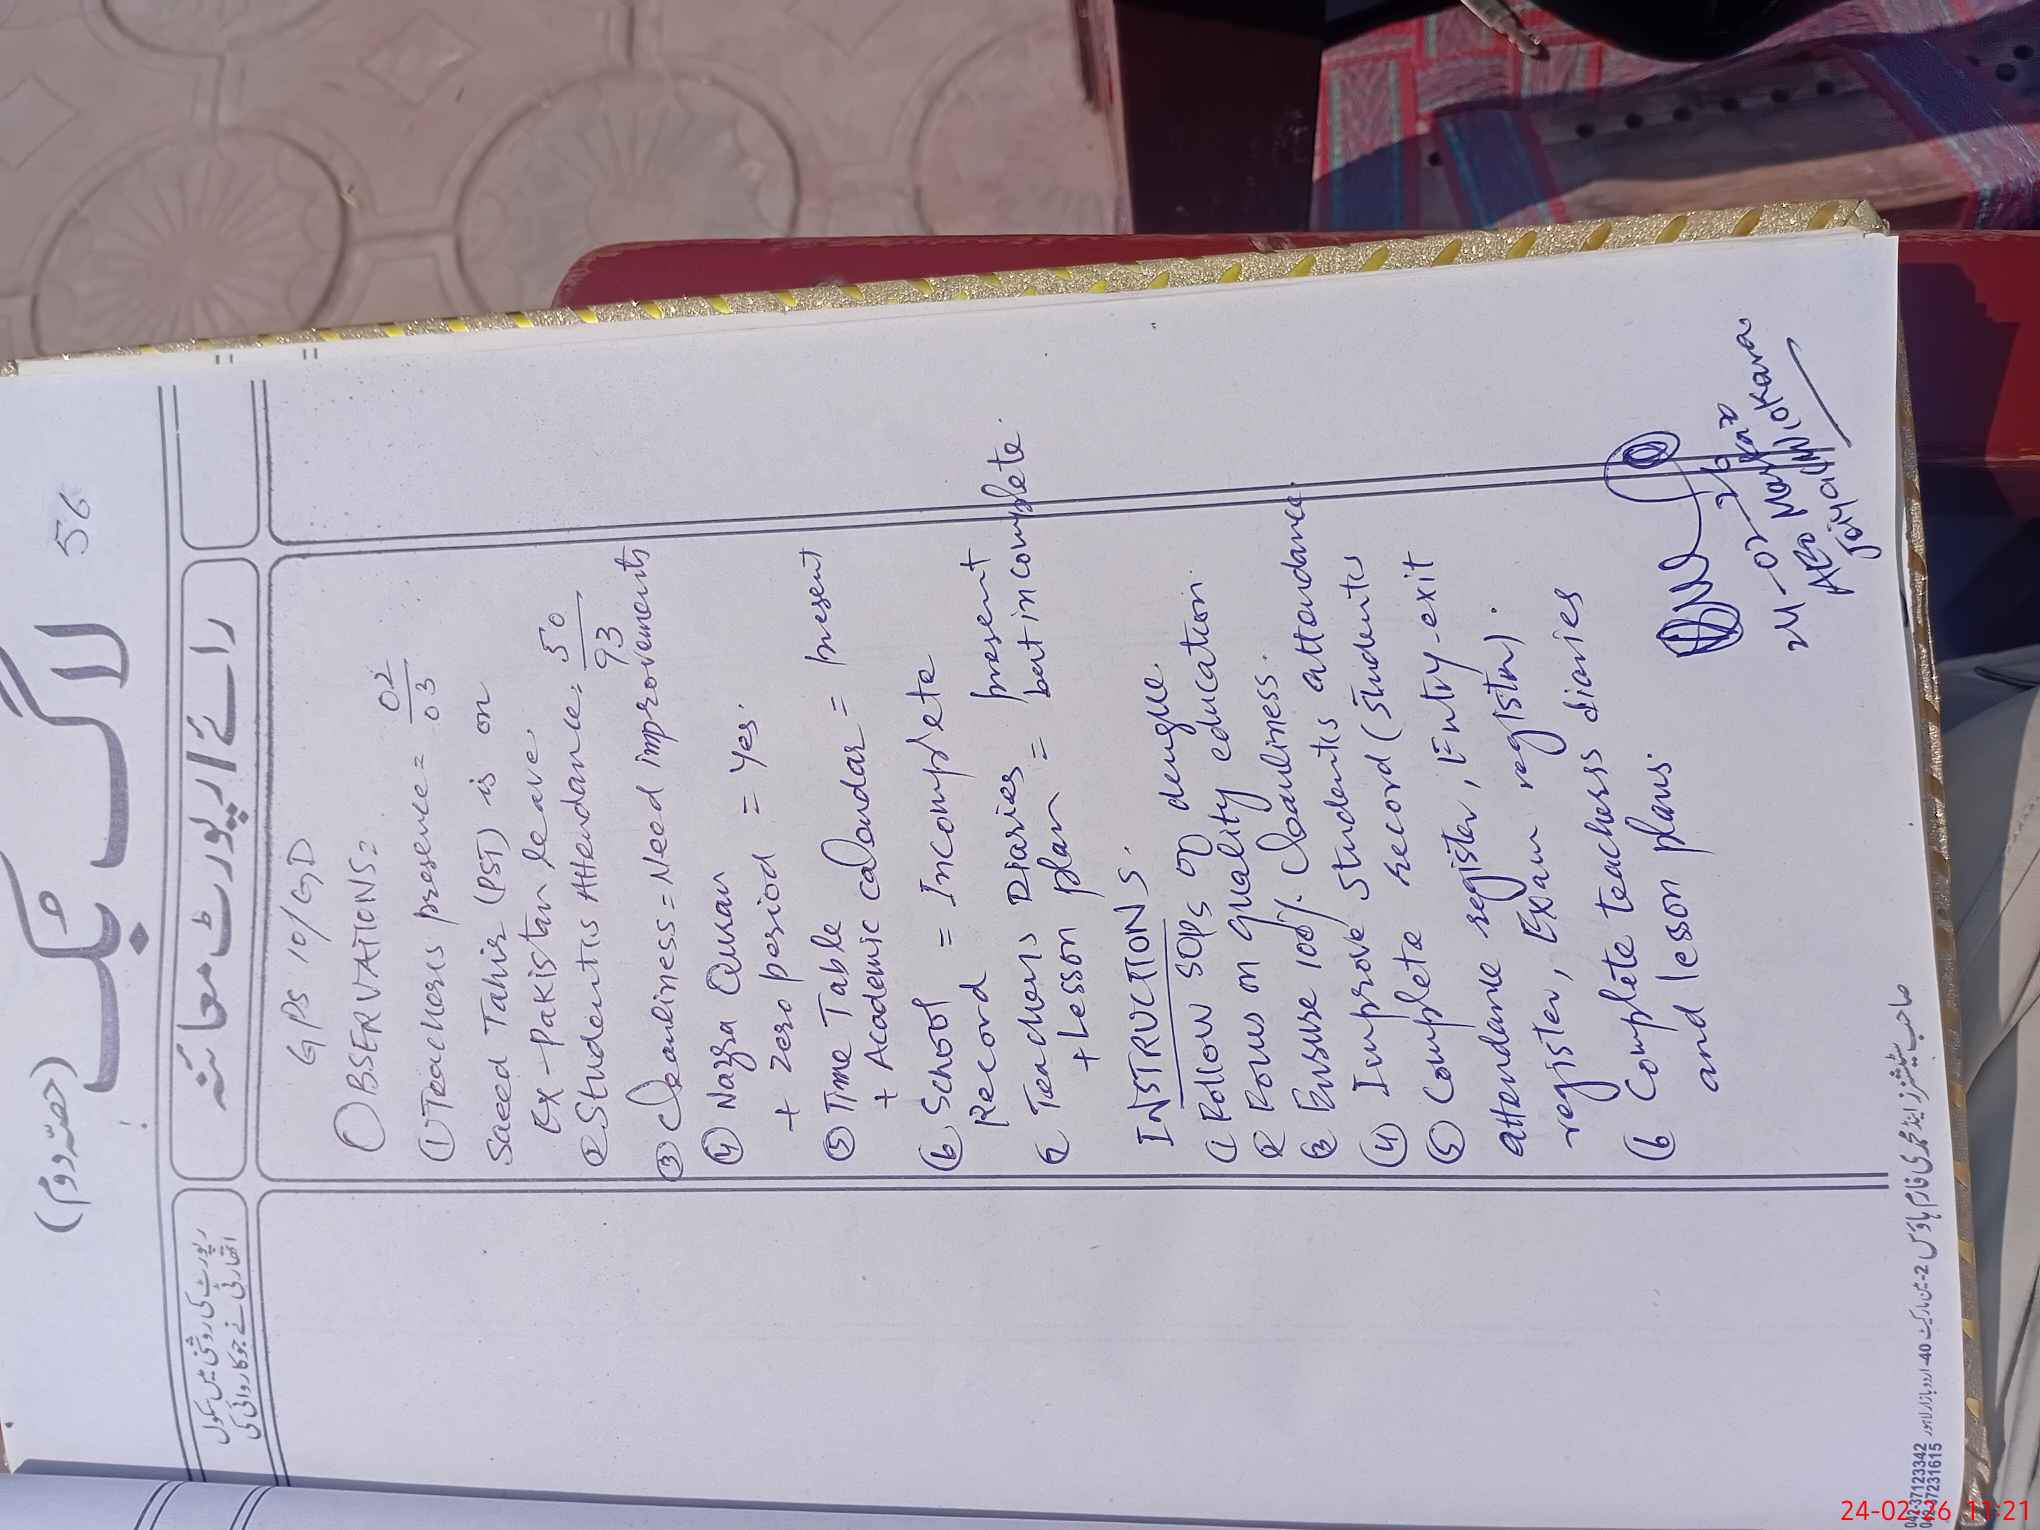 (حصہ دوم)
لاگ بک
56
رپورٹ کی روشنی میں سکول
اتھارٹی نے جو کاروائی کی
رائے / رپورٹ معائنہ
GPS 10/GD
OBSERVATIONS=
① Teachers presence = 02/03
Saeed Tahir (PST) is on
Ex-Pakistan leave.
② Students Attendance = 50/93
③ Cleanliness = Need improvements
④ Nazra Quran
+ zero period = Yes.
⑤ Time Table
+ Academic calendar = present
⑥ School = Incomplete
Record
7 Teachers Diaries present
+ Lesson plan = but incomplete.
INSTRUCTIONS.
① Follow SOPs of dengue
② Focus on quality education.
③ Ensure 100% cleanliness.
④ Improve students attendance
⑤ Complete record (students
attendance register, Entry-exit
register, Exam register).
⑥ Complete teachers diaries
and lesson plans.
24-02-26
AEO Markaz
Okara
042-37123342
042-37231615
24-02-26 11:21